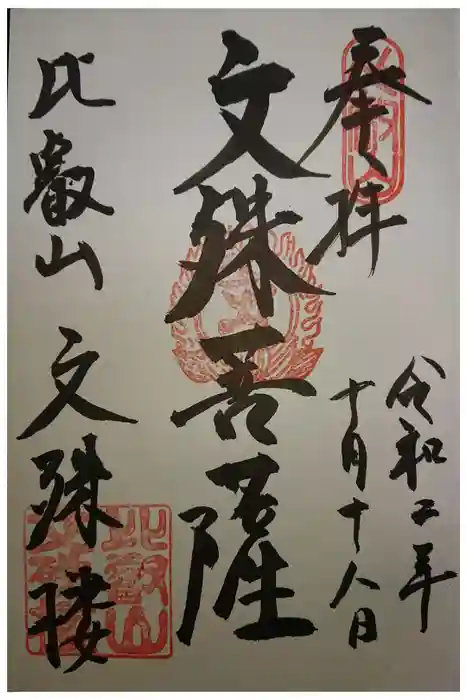 奉拝
令和二年
十月十八日
文殊菩薩
比叡山 文殊楼
比叡山
文殊楼